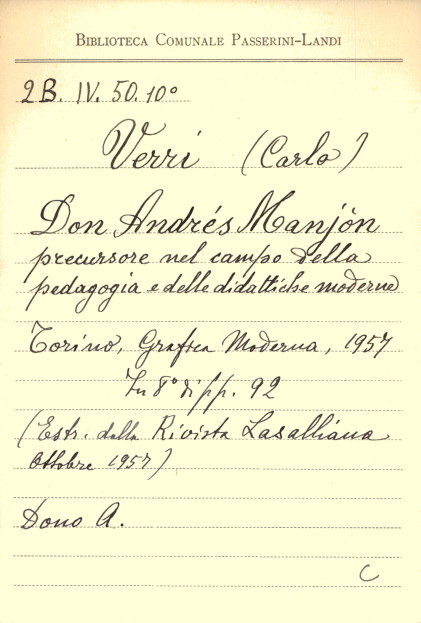 BIBLIOTECA COMUNALE PASSERINI-LANDI
2B. IV. 50. 10°
Verri (Carlo)
Don Andrés Manjòn
precursore nel campo della
pedagogia e delle didattiche moderne
Torino, Grafica Moderna, 1957
In 8° di pp. 92
(Estr. dalla Rivista Lasalliana
Ottobre 1957)
Dono A.
C